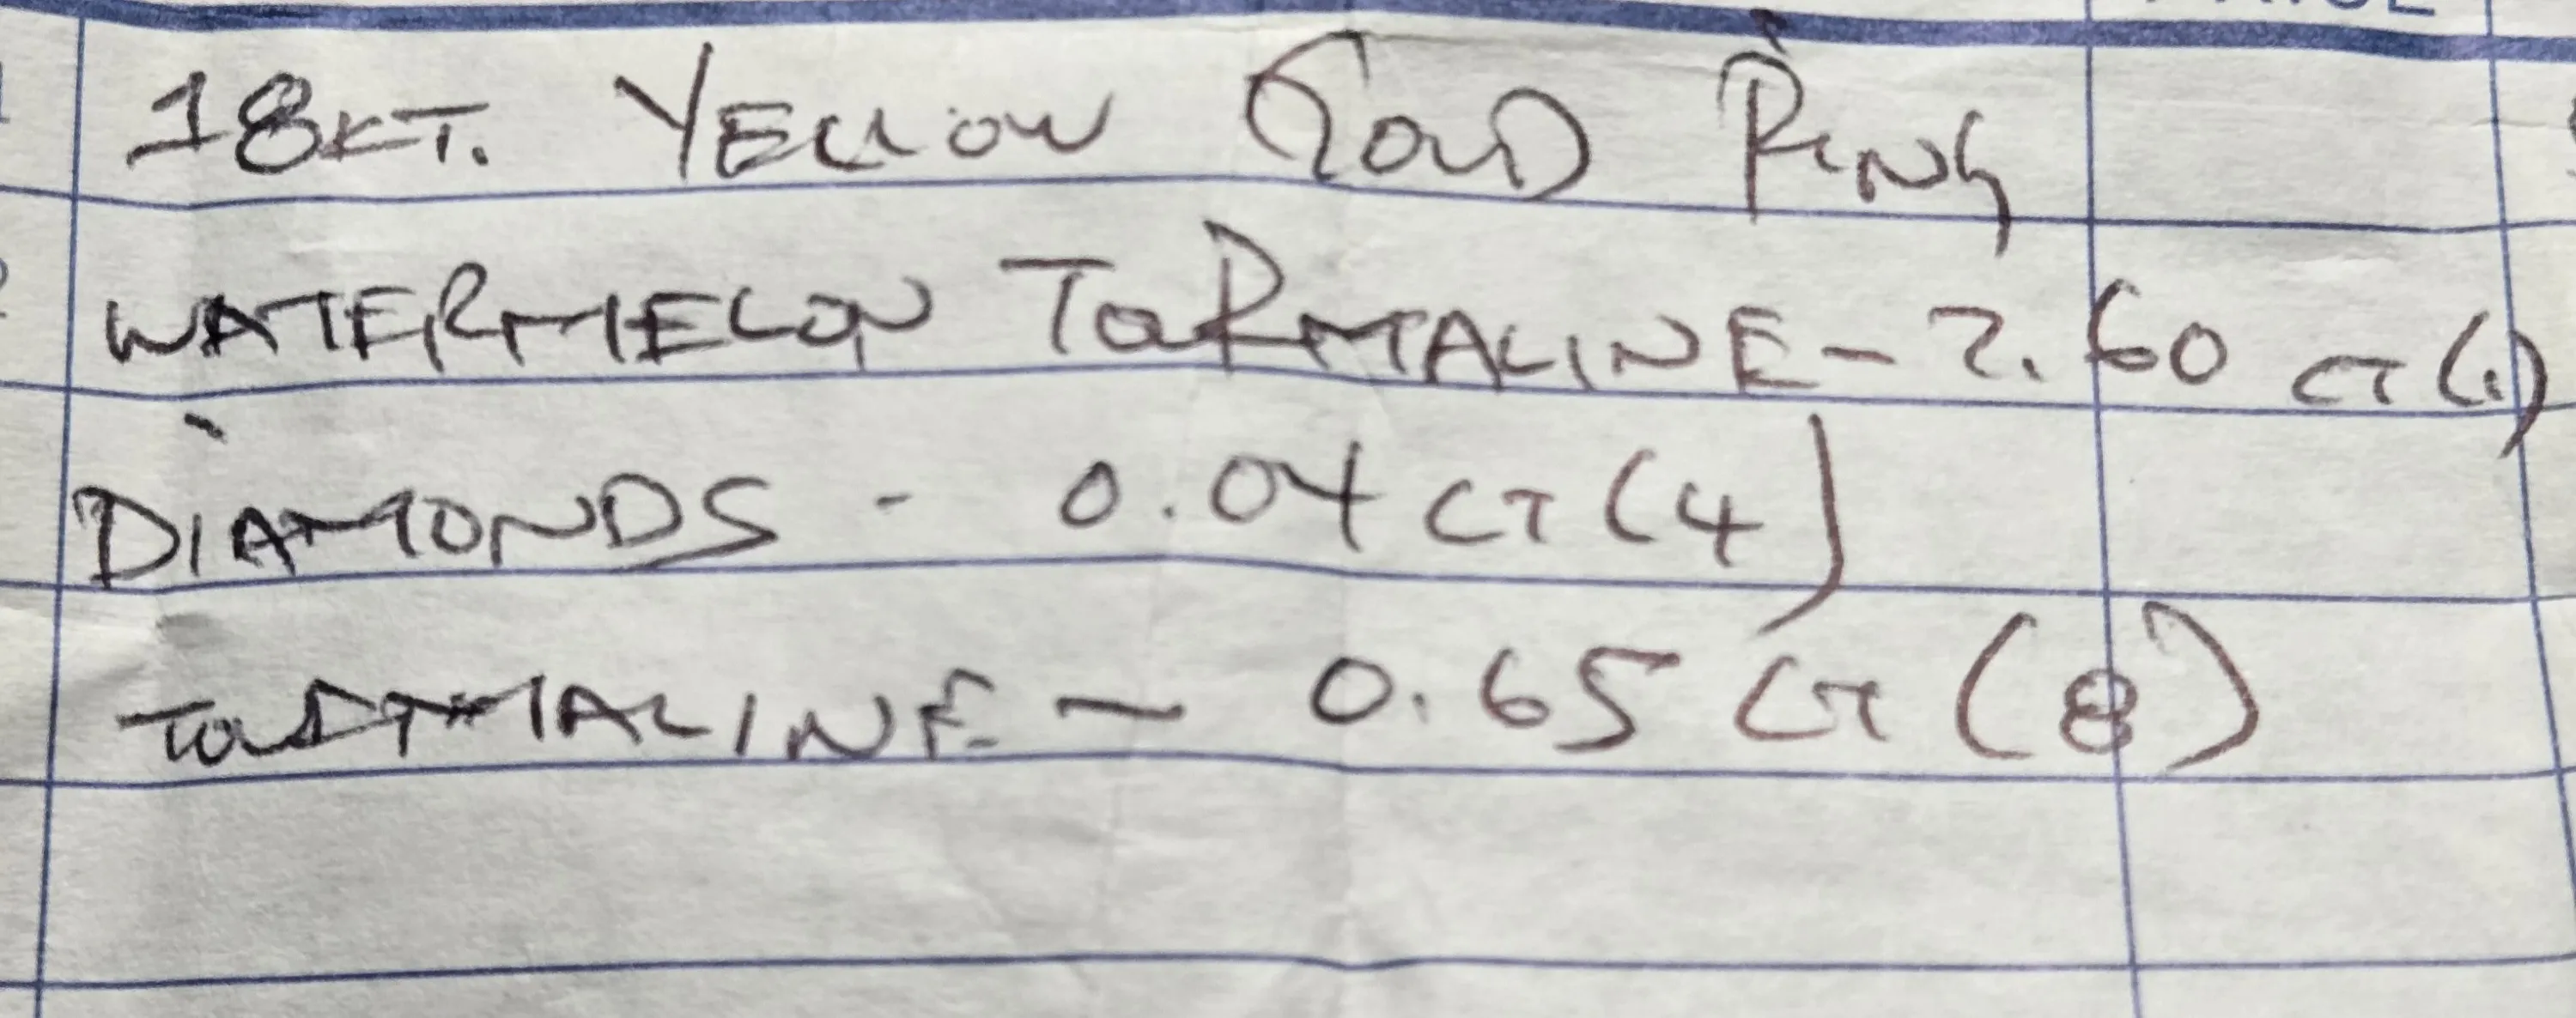 18KT. YELLOW GOLD RING
WATERMELON TOURMALINE - 2.60 CT (1)
DIAMONDS - 0.04 CT (4)
TOURMALINE - 0.65 CT (8)